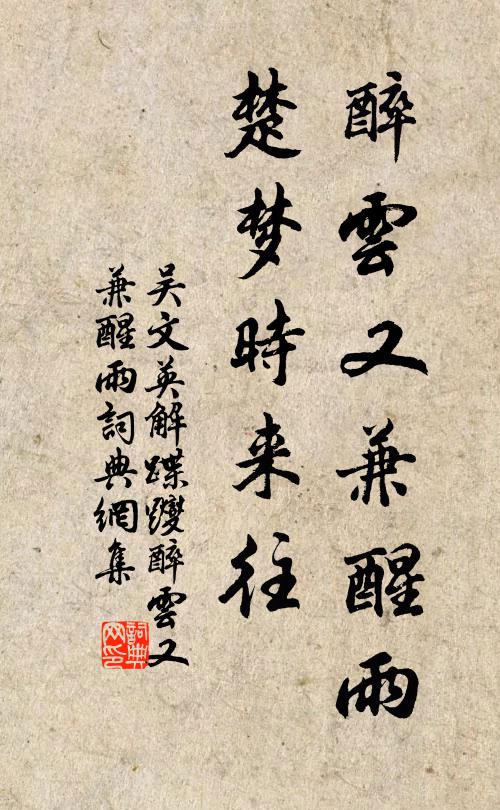 醉雲又兼醒雨
楚梦時来往
吴文英解蹀躞醉雲又
兼醒雨詞典網集
詞典
网印